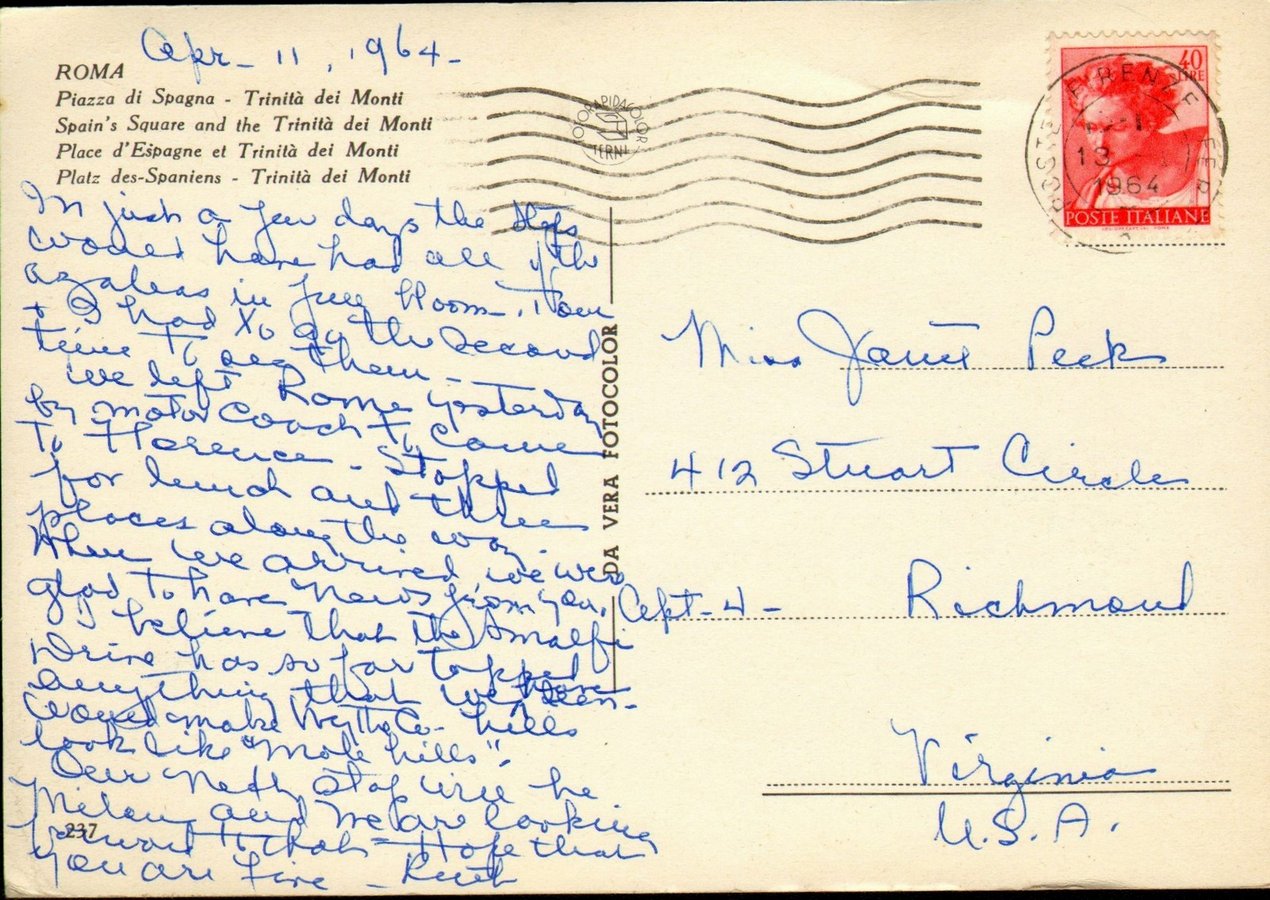 Apr - 11, 1964 -
ROMA
Piazza di Spagna - Trinità dei Monti
Spain's Square and the Trinità dei Monti
Place d'Espagne et Trinità dei Monti
Platz des-Spaniens - Trinità dei Monti
In just a few days the steps
would have had all of the
azaleas in full bloom.
+ I had to go the second
time to see them -
We left Rome yesterday
by motor coach to come
to Florence - Stopped
for lunch and three
places along the way.
When we arrived we were
glad to have news from you.
I believe that the Amalfi
Drive has so far topped
anything that we have seen -
would make Wythe Co. hills
look like "mole hills".
Our next stop will be
Milan and we are looking
forward to that - Hope that
you are fine - Ruth
237
DA VERA FOTOCOLOR
FOTORAPIDACOLOR
TERNI
40
LIRE
POSTE ITALIANE
POSTE FIRENZE FERR
13
1964
Miss Janet Peek
412 Stuart Circle
Apt - 4 - Richmond
Virginia
U.S.A.